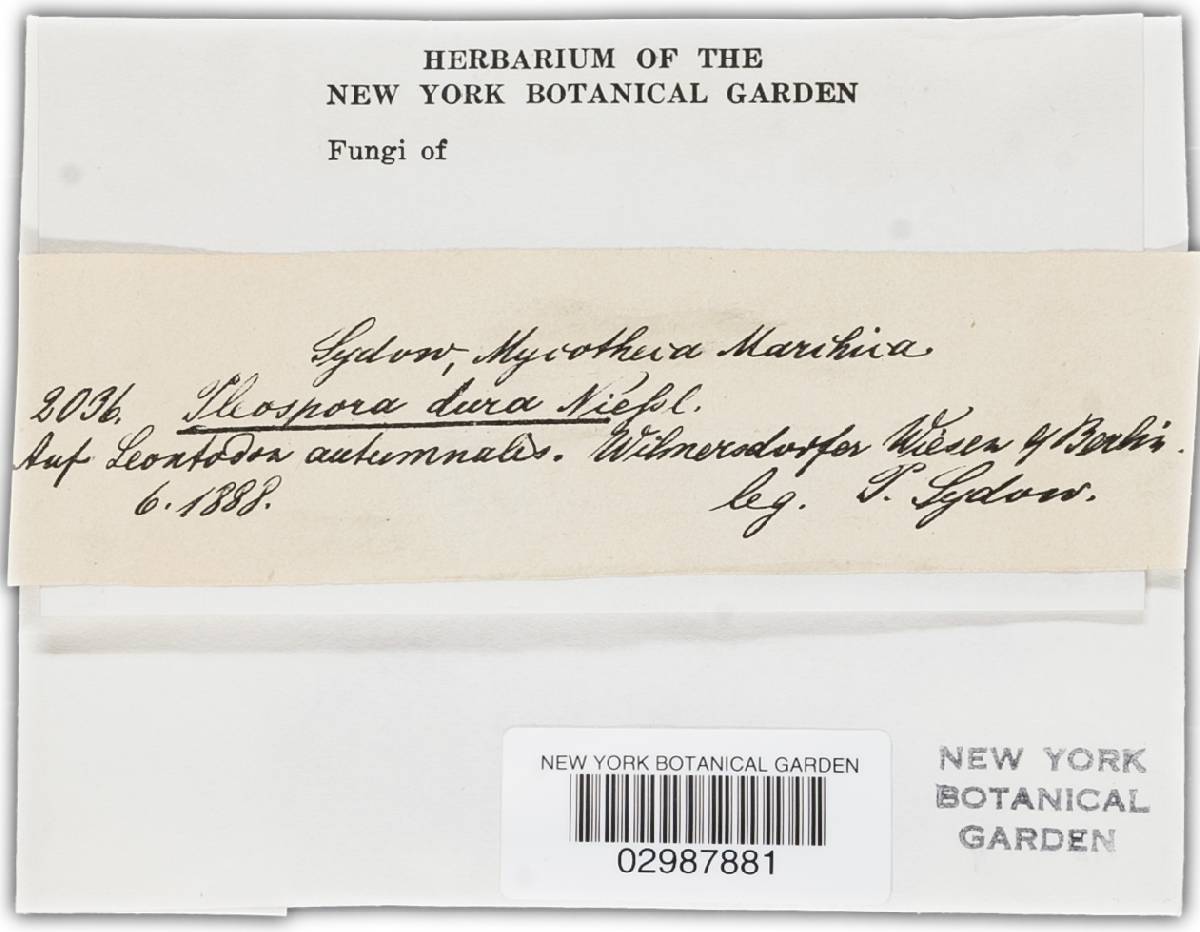 HERBARIUM OF THE
NEW YORK BOTANICAL GARDEN
Fungi of
Sydow, Mycotheca Marchica
2036. Pleospora dura Nießl.
Auf Leontodon autumnalis. Wilmersdorfer Wiesen b/ Berlin.
6. 1888. leg. P. Sydow.
NEW YORK BOTANICAL GARDEN
02987881
NEW YORK
BOTANICAL
GARDEN